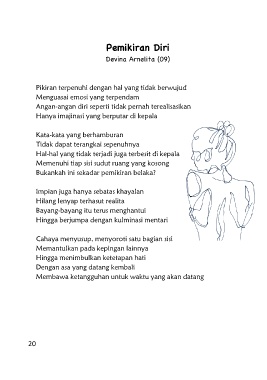 Pemikiran Diri
Devina Arnelita (09)
Pikiran terpenuhi dengan hal yang tidak berwujud
Menguasai emosi yang terpendam
Angan-angan diri seperti tidak pernah terealisasikan
Hanya imajinasi yang berputar di kepala
Kata-kata yang berhamburan
Tidak dapat terangkai sepenuhnya
Hal-hal yang tidak terjadi juga terbesit di kepala
Memenuhi tiap sisi sudut ruang yang kosong
Bukankah ini sekadar pemikiran belaka?
Impian juga hanya sebatas khayalan
Hilang lenyap terhasut realita
Bayang-bayang itu terus menghantui
Hingga berjumpa dengan kulminasi mentari
Cahaya menyusup, menyoroti satu bagian sisi
Memantulkan pada kepingan lainnya
Hingga menimbulkan ketetapan hati
Dengan asa yang datang kembali
Membawa ketangguhan untuk waktu yang akan datang
20